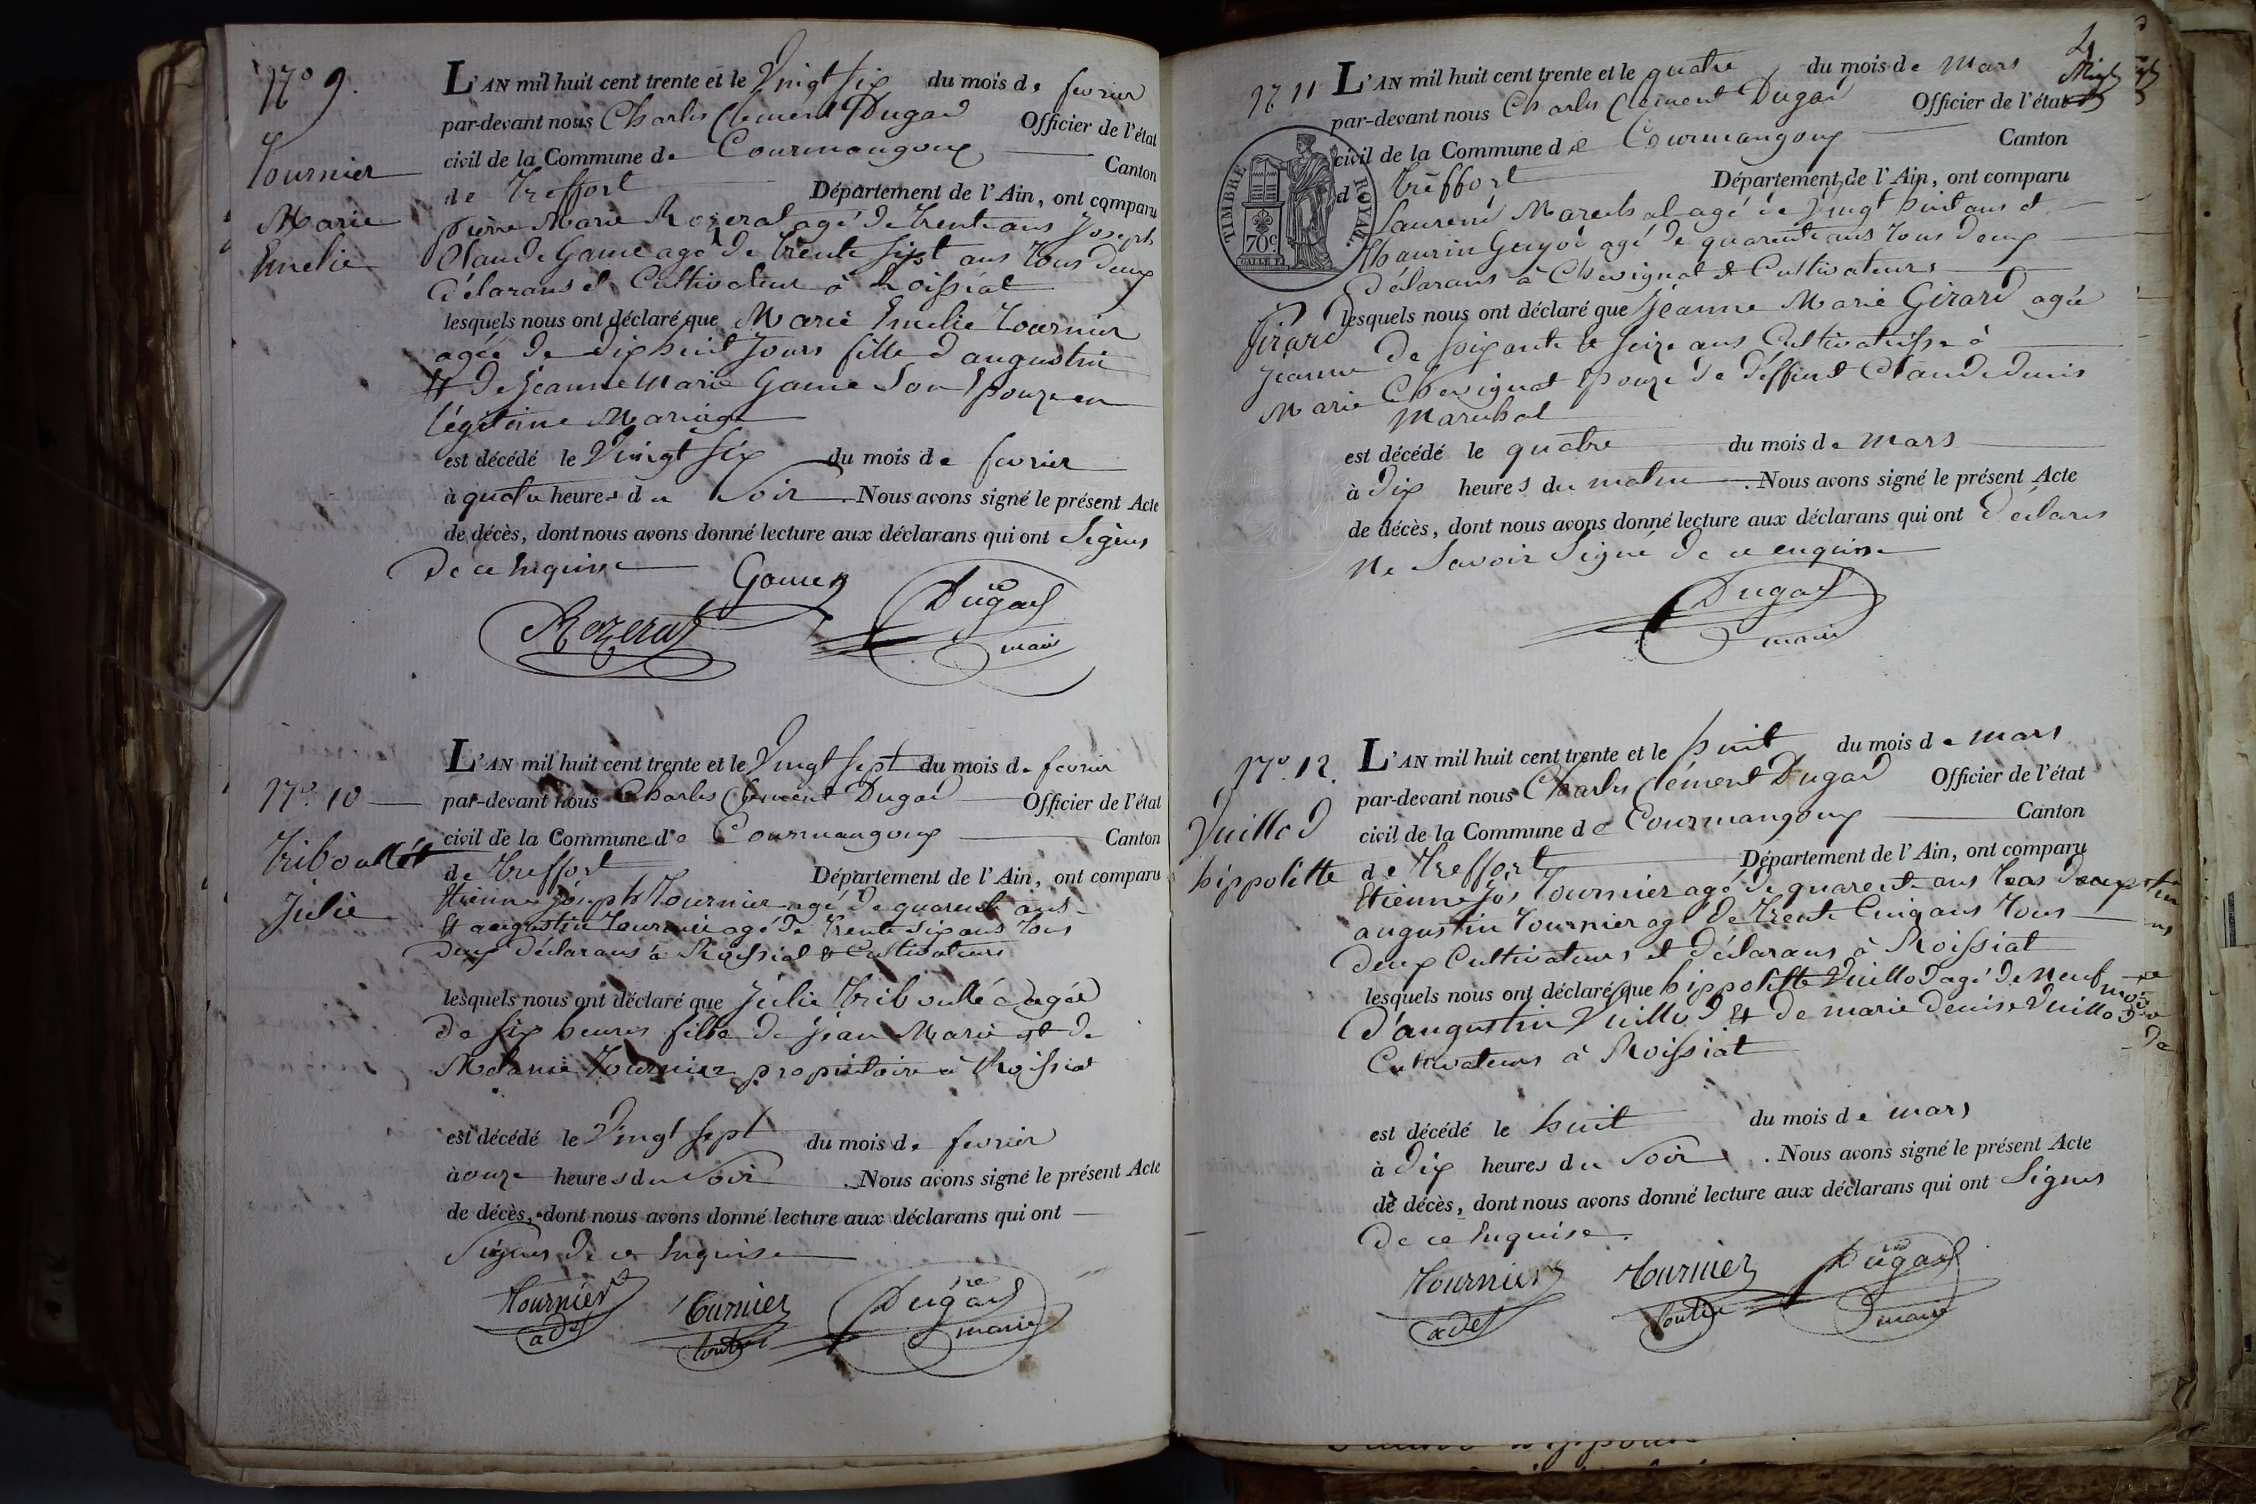 N.o 9.
Tournier
Marie
Emelie
L'AN mil huit cent trente et le Vingt six du mois de fevrier
par-devant nous Charles Clément Dugad Officier de l'état
civil de la Commune de Courmangoux Canton
de Treffort Département de l'Ain, ont comparu
pierre Marie Rozerat agé de trente ans Joseph
Claude Game agé de trente sept ans tous deux
déclarans et Cultivateur à Roissiat
lesquels nous ont déclaré que Marie Emelie Tournier
agée de dix huit Jours fille d'augustin
et de Jeanne Marie Game son Epouze en
légitime Mariage
est décédé le Vingt six du mois de fevrier
à quatre heures du Soir. Nous avons signé le présent Acte
de décès, dont nous avons donné lecture aux déclarans qui ont Signés
de ce Enquise
Game
Rozerat
Dugad
maire
N.o 10
Tribouillet
Julie
L'AN mil huit cent trente et le Vingt sept du mois de fevrier
par-devant nous Charles Clément Dugad Officier de l'état
civil de la Commune de Courmangoux Canton
de Treffort Département de l'Ain, ont comparu
Etienne Joseph Tournier agé de quarente ans
Et augustin Tournier agé de trente six ans tous
deux déclarans à Roissiat & Cultivateurs
lesquels nous ont déclaré que Julie agée
de six heures fille de jean Marie et de
Melanie Tournier propriétaire à Roissiat
est décédé le Vingt sept du mois de fevrier
à onze heures du Soir. Nous avons signé le présent Acte
de décès, dont nous avons donné lecture aux déclarans qui ont
Signés de ce Enquise
Tournier Tournier Dugad
adj maire
N.o 11
TIMBRE ROYAL.
70c
Girard
Jeanne
Marie
L'AN mil huit cent trente et le quatre du mois de Mars
par-devant nous Charles Clément Dugad Officier de l'état
civil de la Commune de Courmangoux Canton
d Treffort Département de l'Ain, ont comparu
Laurent Marechal agé de Vingt huit ans et
Thaurin Guyot agé de quarente ans tous deux
déclarans à Chevignat & Cultivateurs
lesquels nous ont déclaré que Jeanne Marie Girard agée
de soixante et seize ans Cultivatrisse à
Chevignat Epouze de déffunt Claude denis
Marechal
est décédé le quatre du mois de mars
à dix heures du matin. Nous avons signé le présent Acte
de décès, dont nous avons donné lecture aux déclarans qui ont déclarés
Ne Savoir Signé de ce enquise
Dugad
maire
N.o 12.
Vuillod
hippolitte
L'AN mil huit cent trente et le huit du mois de Mars
par-devant nous Charles Clément Dugad Officier de l'état
civil de la Commune de Courmangoux Canton
de Treffort Département de l'Ain, ont comparu
Etienne Jos Tournier agé de quarente ans
augustin Tournier agé de trente Cinq ans tous
deux Cultivateurs et déclarans à Roissiat
lesquels nous ont déclaré que hippolitte Vuillod agé de Neuf mois
d'augustin Vuillod Et de marie denise Vuillod
Cultivateurs à Roissiat
est décédé le huit du mois de mars
à dix heures du Soir. Nous avons signé le présent Acte
de décès, dont nous avons donné lecture aux déclarans qui ont Signés
de ce Enquise.
Tournier Tournier Dugad
adj maire